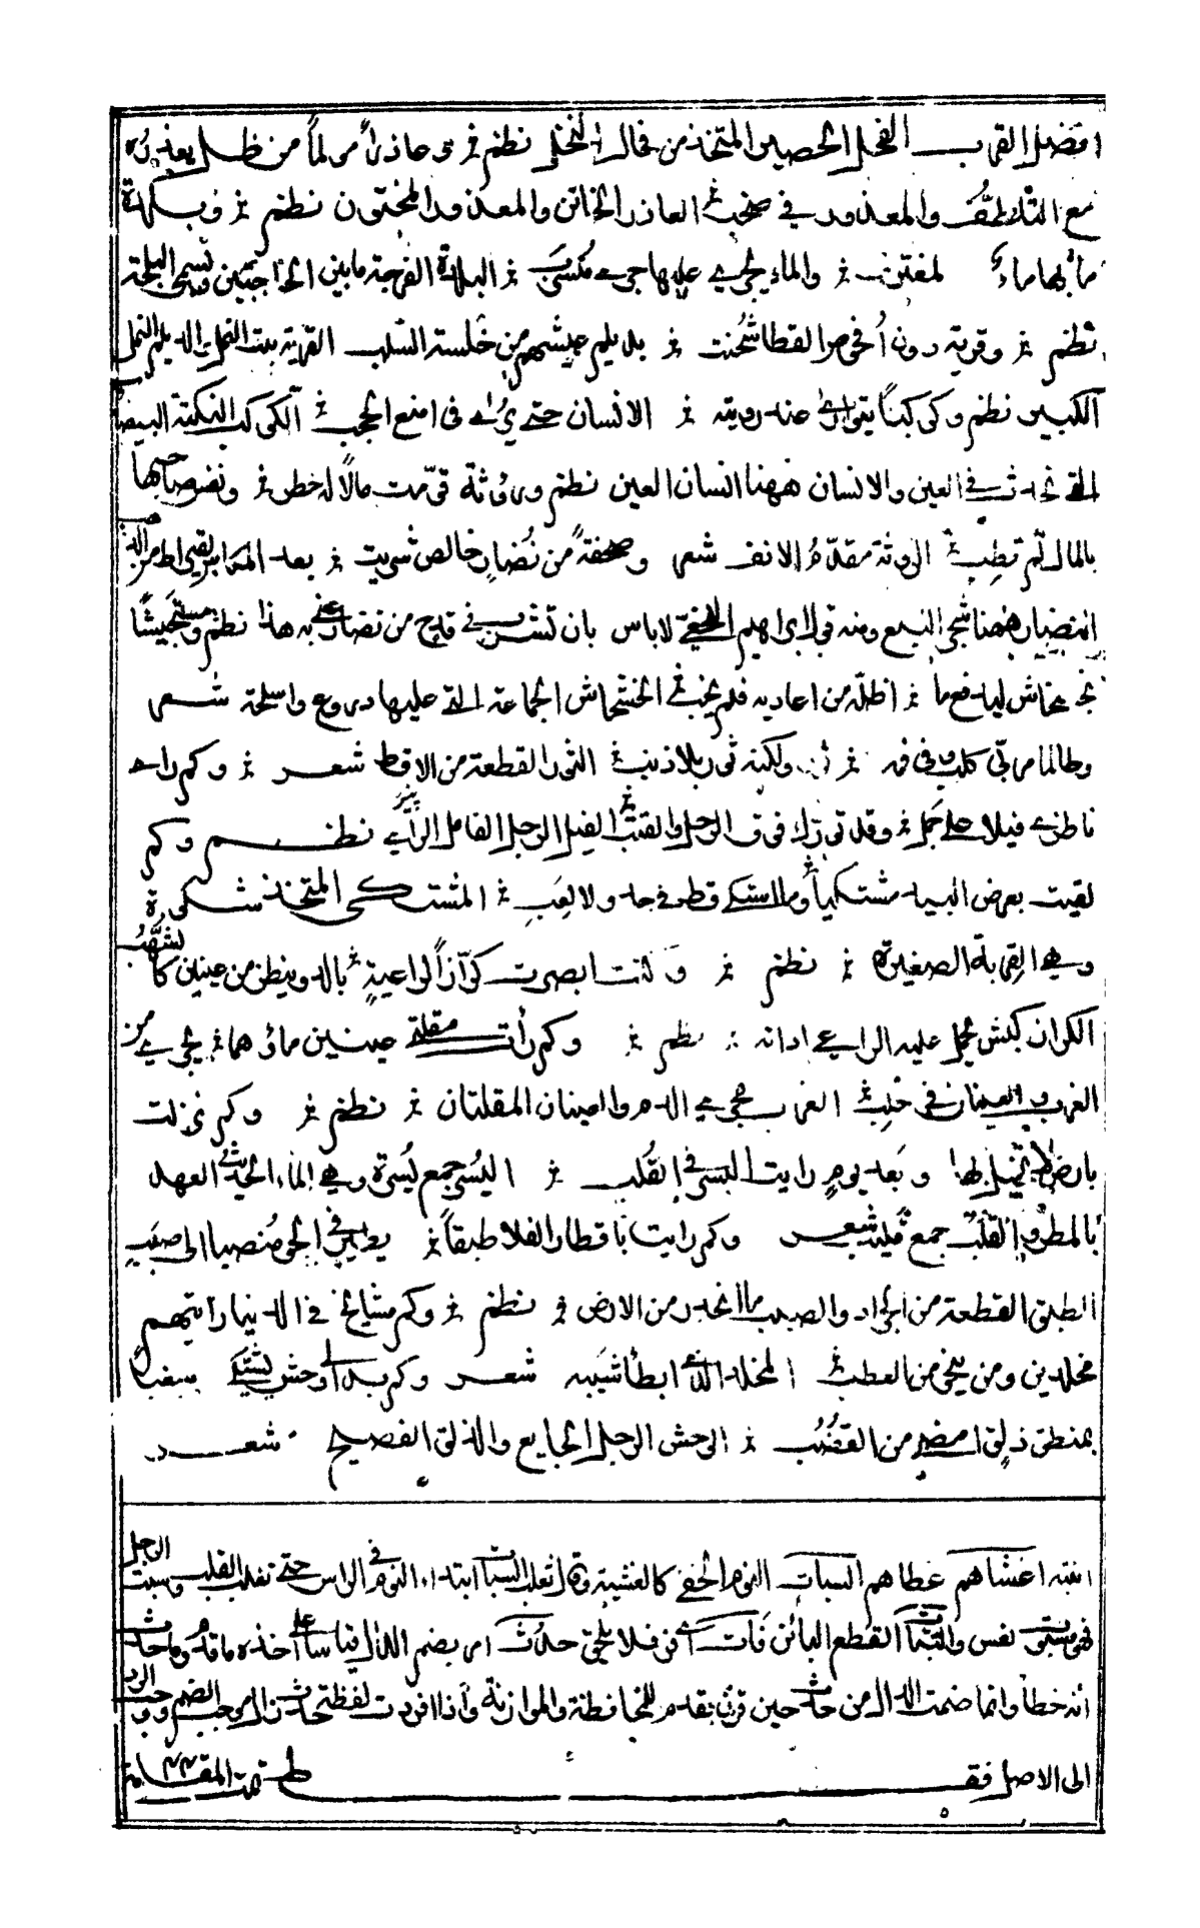 افضل القراب الفحل الحصير المتخذ من فحال النخل نظم غير وعاذراً مولماً من ظل يعذره
مع التلطف والمعذور في صخب العاذر الخاتن والمعذور المختون نظم وبلدة
ما بها ماء لمغترف والماء يجري عليها جري منسرب البلدة الفرجة ما بين الحاجبين وتسمى البلجة
نظم وقرية دون أفحوص القطا شحنت بديلم عيشهم من خلسة السلب القرية بيت النمل والديلم النمل
الكبير نظم وكوكباً يتوارى عند رويته الانسان حتى يرى في امنع الحجب الكوكب النكتة البيضا
التي تحدث في العين والانسان ههنا انسان العين نظم وروثة قومت مالاً له خطر ونفس صاحبها
بالمال لم تطب الروثة مقدم الانف شعر وصحفة من نضار خالص شريت بعد المكاس بقيراط من الذهب
النضار ههنا شجر النبع ومنه قول ابراهيم النخعي لا باس بان تشرب في قدح من نضار عنى به هذا نظم ومستجيشاً
بخشخاش ليدفع ما اظله من اعاديه فلم يخب الخشخاش الجماعة التي عليها دروع واسلحة شعر
وطالما مر بي كلب وفي فمه ثور ولكنه ثور بلا ذنب الثور القطعة من الاقط شعر وكم راى
ناظري فيلا على جمل وقد تورك فوق الرحل والقتب الفيل الرجل الفايل الراي نظم وكم
لقيت بعرض البيد مشتكياً وما اشتكى قط في جد ولا لعب المشتكي المتخذ شكوة
وهي القربة الصغيرة نظم وكنت ابصرت كرازاً لراعية بالدو ينظر من عينين كالشهب
الكراز كبش يحمل عليه الراعي اداته نظم وكم رأت مقلتي عينين ماؤهما يجري من
الغرب والعينان في حلب الغرب مجرى الدمع والعينان المقلتان نظم وكم نزلت
بارض لا نخيل بها وبعد يوم رايت البسر في القلب البسر جمع بسرة وهي الماء الحديث العهد
بالمطر والقلب جمع قليب شعر وكم رايت باقطار الفلا طبقاً يطير في الجو منصبا الى صبب
الطبق القطعة من الجراد والصبب ما انحدر من الارض نظم وكم مشايخ في الدنيا رايتهم
مخلدين ومن ينجو من العطب المخلد الذي ابطأ شيبه شعر وكم بدا لي وحش يشتكي سغباً
بمنطق ذلق امضى من القضب الوحش الرجل الجايع والذلق الفصيح شعر
انتبه اغشاهم غطاهم السبات النوم الخفي كالغشية وقال ثعلب السبات ابتداء النوم في الراس حتى تغلب القلب وسبت الرجل
فهو مسبوت نفس والبتات القطع البائن فات اي فر فلا يلحق حدث امر بضم الدال قياساً على اخذه ما قدم وما حدث
انه خطأ وانما ضمت الدال من حدث حين قرن بقدم للمحافظة والموازنة واذا افردت لفظة حدث زال موجب الضم ووجب الرد
الى الاصل فقط تمت المقامة ٤٤